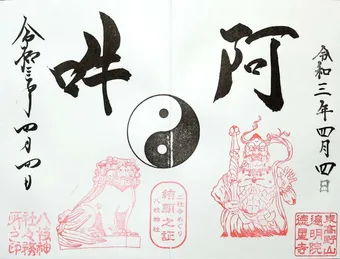 阿
令和三年四月四日
東高野山
遍明院
徳星寺
結願之証
八枝神社
吽
令和三年四月四日
八枝神
社々務
所之印